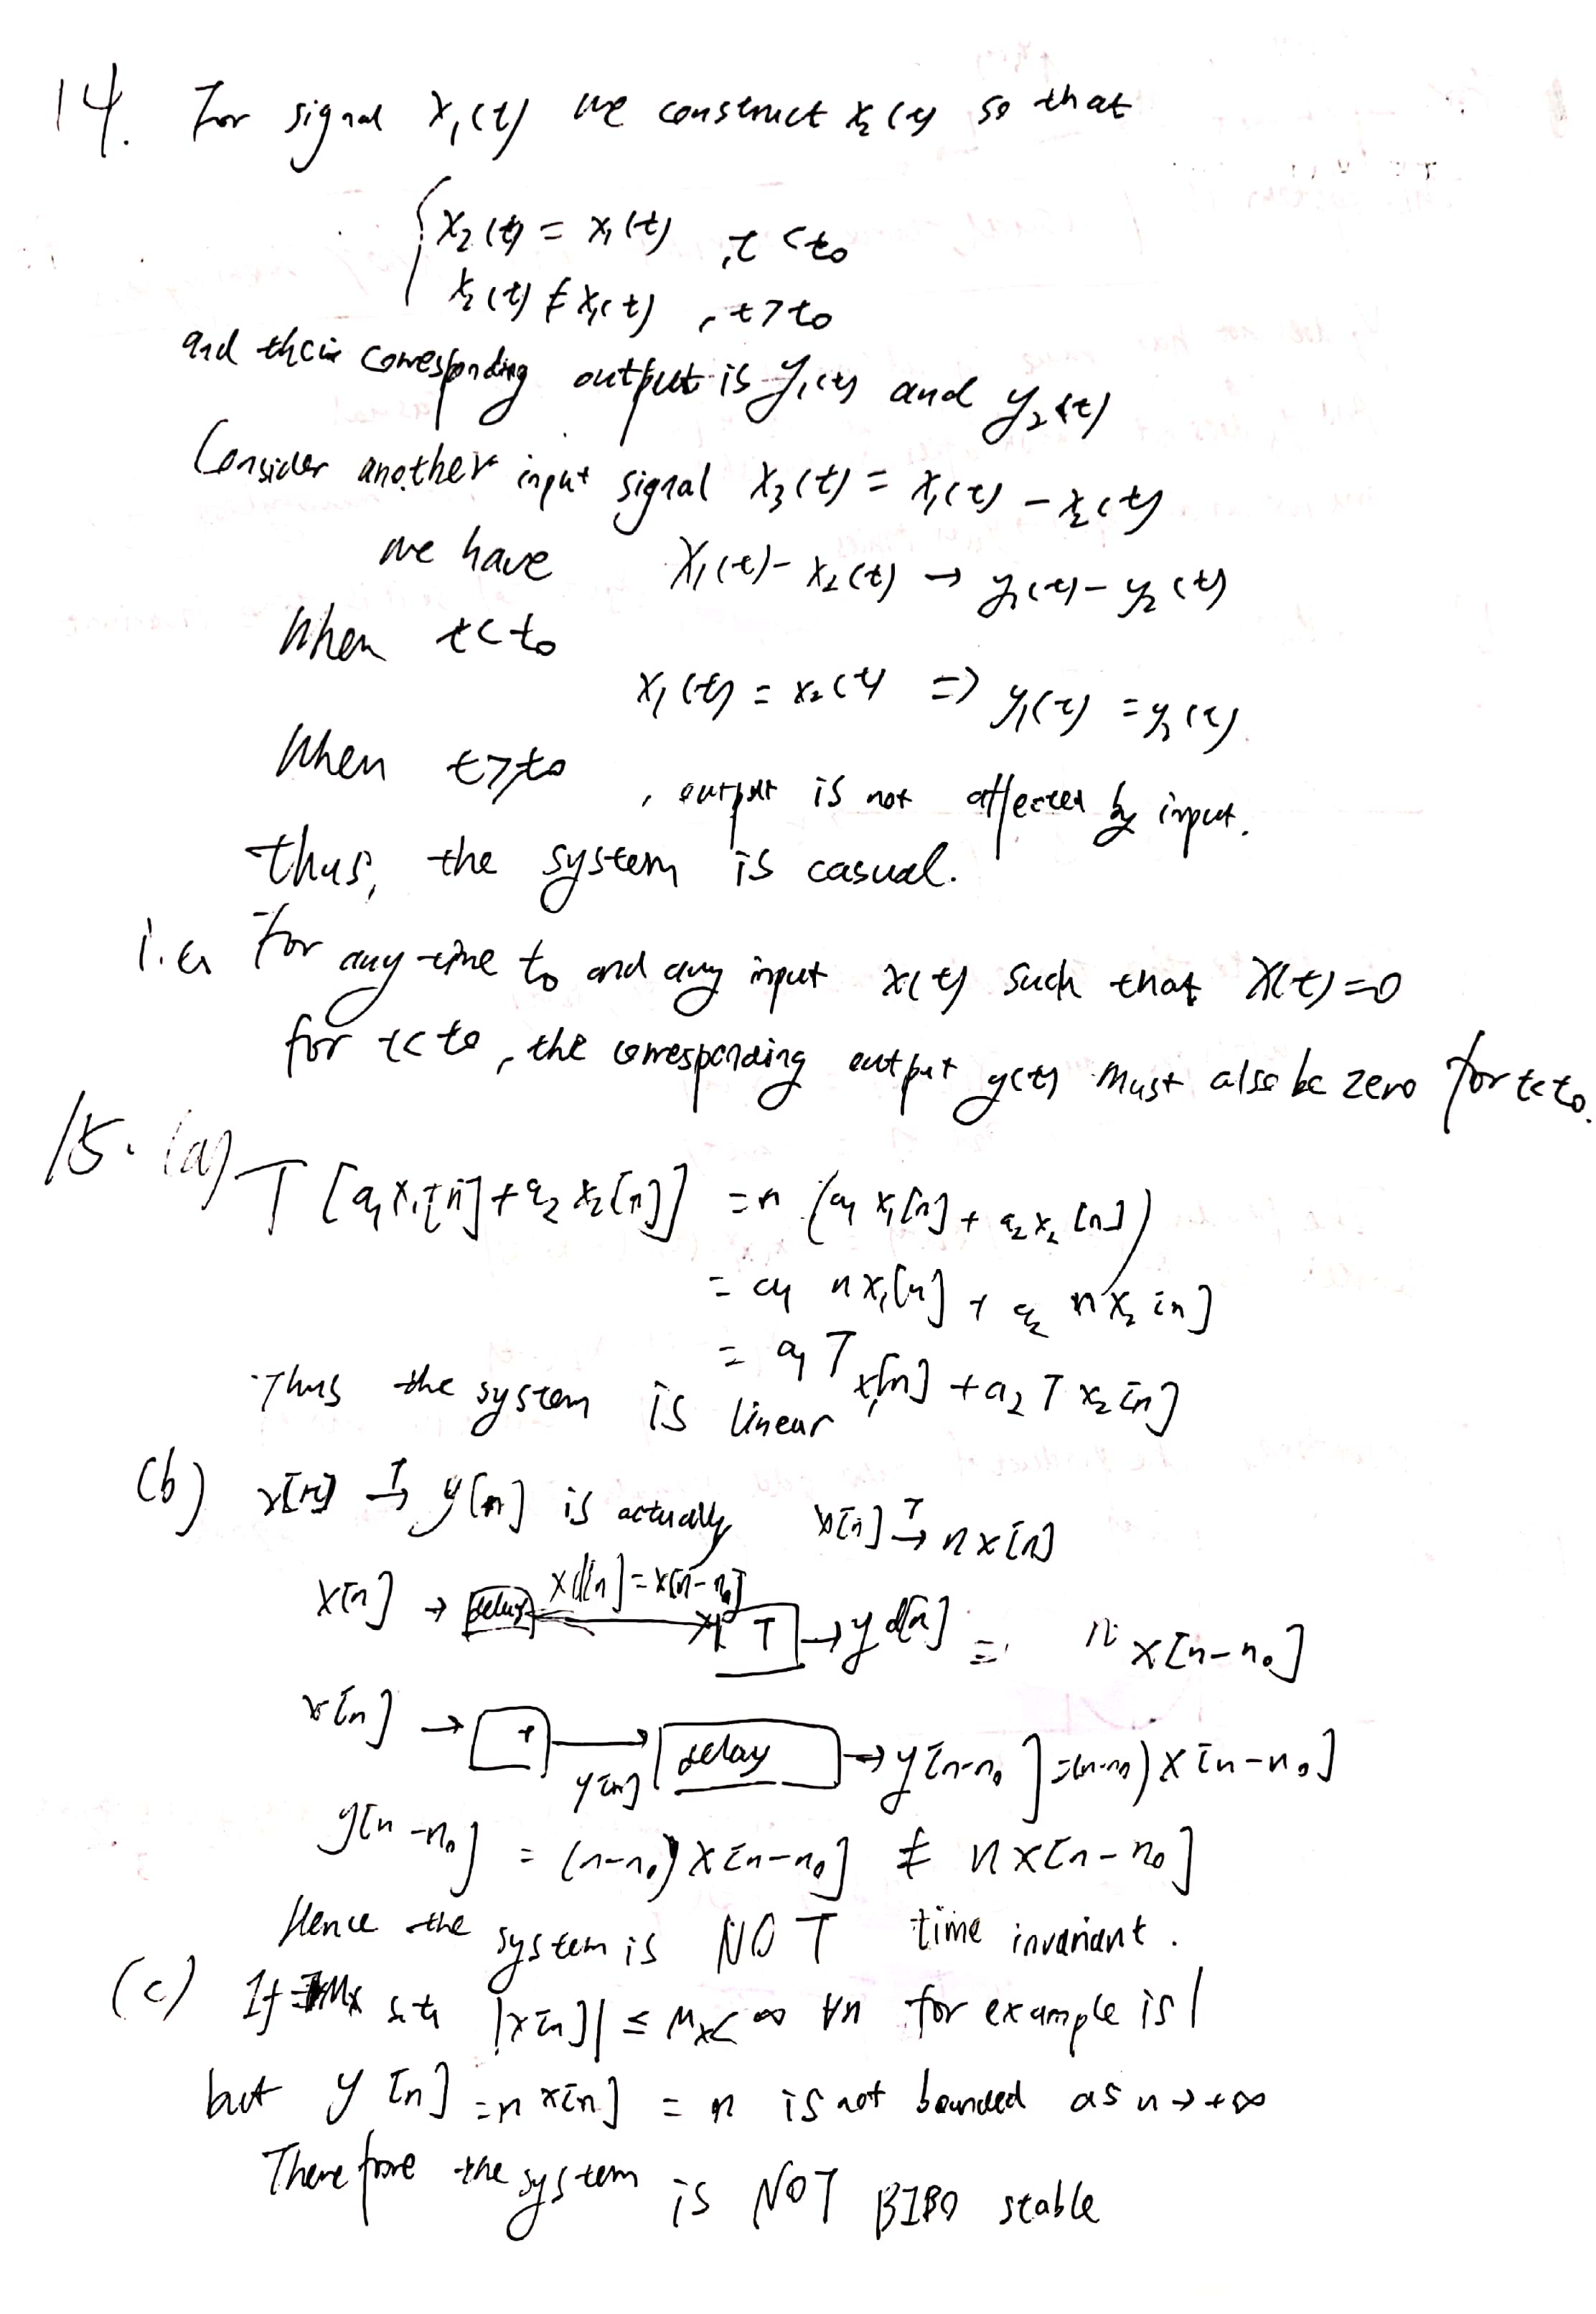 14. For signal x₁(t) we construct x₂(t) so that
x₂(t) = x₁(t) , t < t₀
x₂(t) ≠ x₁(t) , t > t₀
and their corresponding output is y₁(t) and y₂(t)
Consider another input signal x₃(t) = x₁(t) - x₂(t)
we have x₁(t) - x₂(t) → y₁(t) - y₂(t)
When t < t₀
x₁(t) = x₂(t) => y₁(t) = y₂(t).
When t > t₀ , output is not affected by input.
thus, the system is casual.
i.e. For any time t₀ and any input x(t) such that x(t) = 0
for t < t₀, the corresponding output y(t) must also be zero for t < t₀.
15. (a) T [a₁x₁[n] + a₂x₂[n]] = n (a₁x₁[n] + a₂x₂[n])
= a₁ n x₁[n] + a₂ n x₂[n]
= a₁ T x₁[n] + a₂ T x₂[n]
Thus the system is linear
(b) x[n] T→ y[n] is actually x[n] T→ n x[n]
x[n] → delay xd[n] = x[n-n₀] → T → yd[n] = n x[n-n₀]
x[n] → T → y[n] delay → y[n-n₀] = (n-n₀) x[n-n₀]
y[n-n₀] = (n-n₀) x[n-n₀] ≠ n x[n-n₀]
Hence the system is NOT time invariant.
(c) If ∃ Mx s.t. |x[n]| ≤ Mx < ∞ ∀n for example is 1
but y[n] = n x[n] = n is not bounded as n → +∞
Therefore the system is NOT BIBO stable